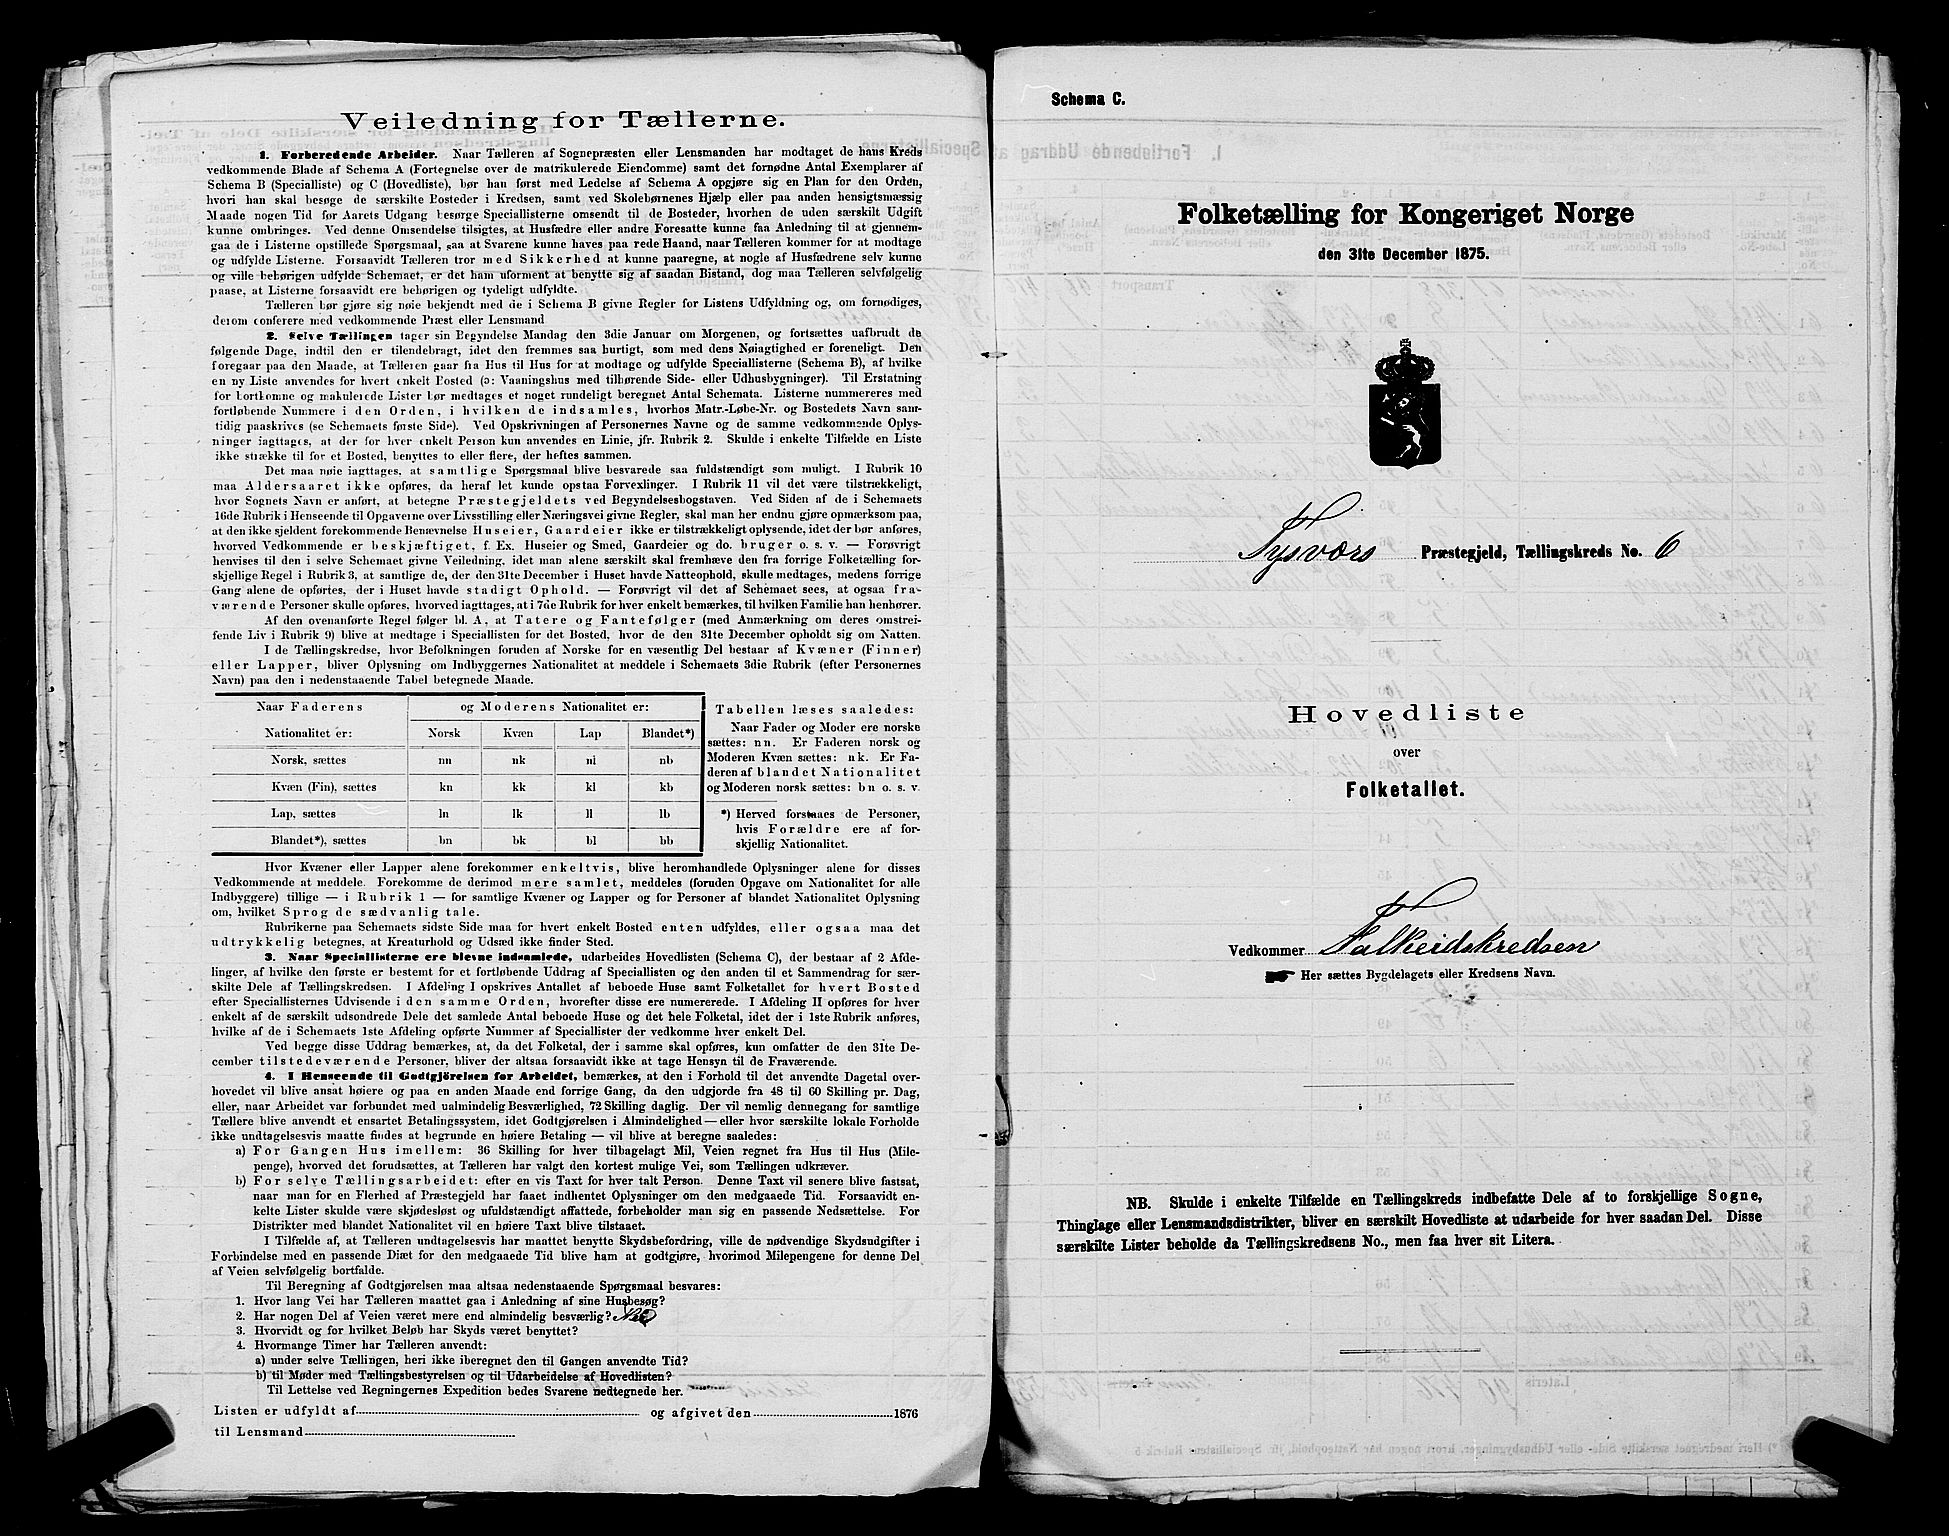 Veiledning for Tællerne.
1. Forberedende Arbeider. Naar Tælleren af Sognepræsten eller Lensmanden har modtaget de hans Kreds
vedkommende Blade af Schema A (Fortegnelse over de matrikulerede Eiendomme) samt det fornødne Antal Exemplarer af
Schema B (Specialliste) og C (Hovedliste), bør han først med Ledelse af Schema A opgjøre sig en Plan for den Orden,
hvori han skal besøge de særskilte Bosteder i Kredsen, samt ved Skolebørnenes Hjælp eller paa anden hensigtsmæssig
Maade nogen Tid før Aarets Udgang besørge Speciallisterne omsendt til de Bosteder, hvorhen de uden særskilt Udgift
kunne ombringes. Ved denne Omsendelse tilsigtes, at Husfædre eller andre Foresatte kunne faa Anledning til at gjennem-
gaa de i Listerne opstillede Spørgsmaal, saa at Svarene kunne haves paa rede Haand, naar Tælleren kommer for at modtage
og udfylde Listerne. Forsaavidt Tælleren tror med Sikkerhed at kunne paaregne, at nogle af Husfædrene selv kunne
og ville behørigen udfylde Schemaet, er det ham uforment at benytte sig af saadan Bistand, dog maa Tælleren selvfølgelig
paase, at Listerne forsaavidt ere behørigen og tydeligt udfyldte.
Tælleren bør gjøre sig nøie bekjendt med de i Schema B givne Regler for Listens Udfyldning og, om fornødiges,
derom conferere med vedkommende Præst eller Lensmand
2. Selve Tællingen tager sin Begyndelse Mandag den 3die Januar om Morgenen, og fortsættes uafbrudt de
følgende Dage, indtil den er tilendebragt, idet den fremmes saa hurtigt, som med dens Nøiagtighed er foreneligt. Den
foregaar paa den Maade, at Tælleren gaar fra Hus til Hus for at modtage og udfylde Speciallisterne (Schema B), af hvilke
en ny Liste anvendes for hvert enkelt Bosted (ɔ: Vaaningshus med tilhørende Side- eller Udhusbygninger). Til Erstatning
for bortkomne og makulerede Lister bør medtages et noget rundeligt beregnet Antal Schemata. Listerne nummereres med
fortløbende Nummere i den Orden, i hvilken de indsamles, hvorhos Matr.-Løbe-Nr. og Bostedets Navn sam-
tidig paaskrives (se Schemaets første Side). Ved Opskrivningen af Personernes Navne og de samme vedkommende Oplys-
ninger iagttages, at der for hver enkelt Person kun anvendes en Linie, jfr. Rubrik 2. Skulde i enkelte Tilfælde en Liste
ikke strække til for et Bosted, benyttes to eller flere, der heftes sammen.
Det maa nøie iagttages, at samtlige Spørgsmaal blive besvarede saa fuldstændigt som muligt. I Rubrik 10
maa Aldersaaret ikke opføres, da heraf let kunde opstaa Forvexlinger. I Rubrik 11 vil det være tilstrækkeligt,
hvor Sognets Navn er anført, at betegne Præstegjeldets ved Begyndelsesbogstaven. Ved Siden af de i Schemaets
16de Rubrik i Henseende til Opgaverne over Livsstilling eller Næringsvei givne Regler, skal man her endnu gjøre opmærksom paa,
at den ikke sjeldent forekommende Benævnelse Huseier, Gaardeier ikke er tilstrækkeligt oplysende, idet der bør anføres,
hvorved Vedkommende er beskjæftiget, f. Ex. Huseier og Smed, Gaardeier og do. bruger o. s. v. — Forøvrigt
henvises til den i selve Schemaet givne Veiledning, idet man alene særskilt skal fremhæve den fra forrige Folketælling for-
skjellige Regel i Rubrik 3, at samtlige de, der den 31te December i Huset havde Natteophold, skulle medtages, medens forrige
Gang alene de opførtes, der i Huset havde stadigt Ophold. — Forøvrigt vil det af Schemaet sees, at ogsaa fra-
værende Personer skulle opføres, hvorved iagttages, at i 7de Rubrik for hver enkelt bemærkes, til hvilken Familie han henhører.
Af den ovenanførte Regel følger bl. A., at Tatere og Fantefølger (med Anmærkning om deres omstrei-
fende Liv i Rubrik 9) blive at medtage i Speciallisten for det Bosted, hvor de den 31te December opholdt sig om Natten.
I de Tællingskredse, hvor Befolkningen foruden af Norske for en væsentlig Del bestaar af Kvæner (Finner)
eller Lapper, bliver Oplysning om Indbyggernes Nationalitet at meddele i Schemaets 3die Rubrik (efter Personernes
Navn) paa den i nedenstaaende Tabel betegnede Maade.
Naar Faderens og Moderens Nationalitet er:
Nationalitet er: Norsk Kvæn Lap Blandet*)
Norsk, sættes nn nk nl nb
Kvæn (Fin), sættes kn kk kl kb
Lap, sættes ln lk ll lb
Blandet*), sættes bn bk bl bb
Tabellen læses saaledes:
Naar Fader og Moder ere norske
sættes: nn. Er Faderen norsk og
Moderen Kvæn sættes: nk. Er Fa-
deren af blandet Nationalitet
og Moderen norsk sættes: bn o. s. v.
*) Herved forstaaes de Personer,
hvis Forældre ere af for-
skjellig Nationalitet.
Hvor Kvæner eller Lapper alene forekommer enkeltvis, blive heromhandlede Oplysninger alene for disses
Vedkommende at meddele. Forekomme de derimod mere samlet, meddeles (foruden Opgave om Nationalitet for alle
Indbyggere) tillige — i Rubrik 1 — for samtlige Kvæner og Lapper og for Personer af blandet Nationalitet Oplysning
om, hvilket Sprog de sædvanlig tale.
Rubrikerne paa Schemaets sidste Side maa for hvert enkelt Bosted enten udfyldes, eller ogsaa maa det
udtrykkelig betegnes, at Kreaturhold og Udsæd ikke finder Sted.
3. Naar Speciallisterne ere blevne indsamlede, udarbeides Hovedlisten (Schema C), der bestaar af 2 Afde-
linger, af hvilke den første er bestemt for et fortløbende Uddrag af Speciallisten og den anden til et Sammendrag for sær-
skilte Dele af Tællingskredsen. I Afdeling I opskrives Antallet af beboede Huse samt Folketallet for hvert Bosted
efter Speciallisternes Udvisende i den samme Orden, hvorefter disse ere numererede. I Afdeling II opføres for hver
enkelt af de særskilt udsondrede Dele det samlede Antal beboede Huse og det hele Folketal, idet der i 1ste Rubrik anføres,
hvilke af de i Schemaets 1ste Afdeling opførte Nummer af Speciallister der vedkomme hver enkelt Del.
Ved begge disse Uddrag bemærkes, at, da det Folketal, der i samme skal opføres, kun omfatter de den 31te De-
cember tilstedeværende Personer, bliver der altsaa forsaavidt ikke at tage Hensyn til de Fraværende.
4. I Henseende til Godtgjörelsen for Arbeidet, bemærkes, at den i Forhold til det anvendte Dagetal over-
hovedet vil blive ansat høiere og paa en anden Maade end forrige Gang, da den udgjorde fra 48 til 60 Skilling pr. Dag,
eller, naar Arbeidet var forbundet med ualmindelig Besværlighed, 72 Skilling daglig. Der vil nemlig dennegang for samtlige
Tællere blive anvendt et ensartet Betalingssystem, idet Godtgjørelsen i Almindelighed — eller hvor særskilte lokale Forholde
ikke undtagelsesvis maatte findes at begrunde en høiere Betaling — vil blive at beregne saaledes:
a) For Gangen Hus imellem: 36 Skilling for hver tilbagelagt Mil, Veien regnet fra Hus til Hus (Mile-
penge), hvorved det forudsættes, at Tælleren har valgt den kortest mulige Vei, som Tællingen udkræver.
b) For selve Tællingsarbeidet: efter en vis Taxt for hver talt Person. Denne Taxt vil senere blive fastsat,
naar man for en Flerhed af Præstegjeld har faaet indhentet Oplysninger om den medgaaede Tid. Forsaavidt en-
kelte Lister skulde være skjødesløst og ufuldstændigt affattede, forbeholder man sig en passende Nedsættelse. For
Distrikter med blandet Nationalitet vil en høiere Taxt blive tilstaaet.
I Tilfælde af, at Tælleren undtagelsesvis har maattet benytte Skydsbefordring, ville de nødvendige Skydsudgifter i
Forbindelse med en passende Diæt for den medgaaede Tid blive ham at godtgjøre, hvorimod Milepengene for denne Del
af Veien selvfølgelig bortfalde.
Til Beregning af Godtgjørelsen maa altsaa nedenstaaende Spørgsmaal besvares:
1. Hvor lang Vei har Tælleren maattet gaa i Anledning af sine Husbesøg?
2. Har nogen Del af Veien været mere end almindelig besværlig?
3. Hvorvidt og for hvilket Beløb har Skyds været benyttet?
4. Hvormange Timer har Tælleren anvendt:
a) under selve Tællingen, heri ikke iberegnet den til Gangen anvendte Tid?
b) til Møder med Tællingsbestyrelsen og til Udarbeidelse af Hovedlisten?
Til Lettelse ved Regningernes Expedition bedes Svarene nedtegnede her.
Listen er udfyldt af og afgivet den 1876
til Lensmand
Schema C.
Folketælling for Kongeriget Norge
den 31te December 1875.
Tysvørs Præstegjeld, Tællingskreds No. 6
Hovedliste
over
Folketallet.
Vedkommer Falkeidskredsen
Her sættes Bygdelagets eller Kredsens Navn.
NB. Skulde i enkelte Tilfælde en Tællingskreds indbefatte Dele af to forskjellige Sogne,
Thinglage eller Lensmandsdistrikter, bliver en særskilt Hovedliste at udarbeide for hver saadan Del. Disse
særskilte Lister beholde da Tællingskredsens No., men faa hver sit Litera.